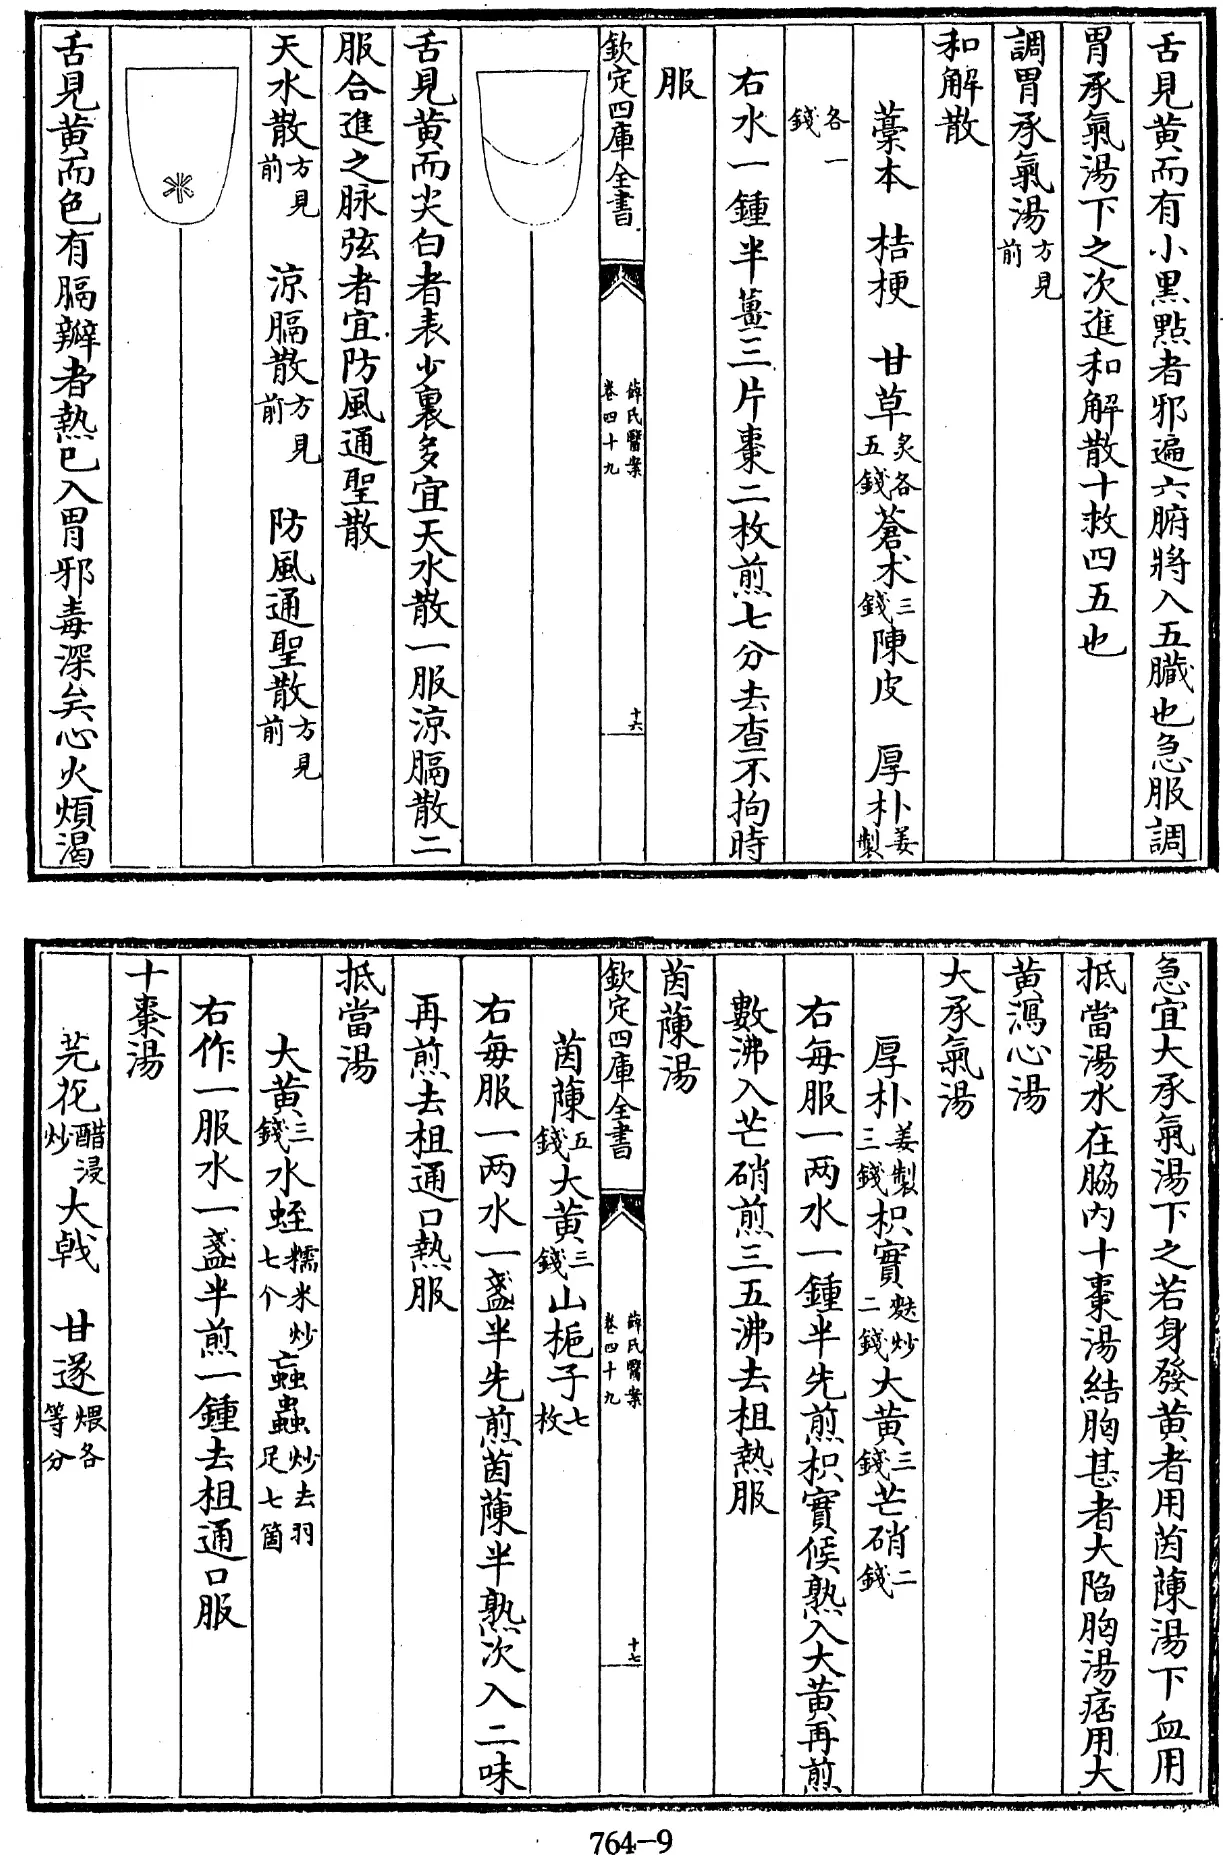 舌見黄而有小黒點者邪遍六腑將入五臟也急服調
胃承氣湯下之次進和解散十救四五也
調胃承氣湯方見前
和解散
藁本　桔梗　甘草炙各五錢蒼术三錢陳皮　厚朴姜製
各一錢
右水一鍾半薑三片棗二枚煎七分去查不拘時
服
欽定四庫全書　薛氏醫案卷四十九　十六
舌見黄而尖白者表少裏多宜天水散一服涼膈散二
服合進之脉弦者宜防風通聖散
天水散方見前　涼膈散方見前　防風通聖散方見前
舌見黄而色有膈瓣者熱已入胃邪毒深矣心火煩渴
急宜大承氣湯下之若身發黄者用茵蔯湯下血用
抵當湯水在脇内十棗湯結胸甚者大陷胸湯痞用大
黄瀉心湯
大承氣湯
厚朴姜製三錢枳實麩炒二錢大黄三錢芒硝二錢
右每服一两水一鍾半先煎枳實候熟入大黄再煎
數沸入芒硝煎三五沸去柤熱服
茵蔯湯
欽定四庫全書　薛氏醫案卷四十九　十七
茵蔯五錢大黄三錢山梔子七枚
右每服一两水一盞半先煎茵蔯半熟次入二味
再煎去柤通口熱服
抵當湯
大黄三錢水蛭糯米炒七个䖟蟲炒去羽足七箇
右作一服水一盞半煎一鍾去柤通口服
十棗湯
芫花醋浸炒大戟　甘遂煨各等分
764-9